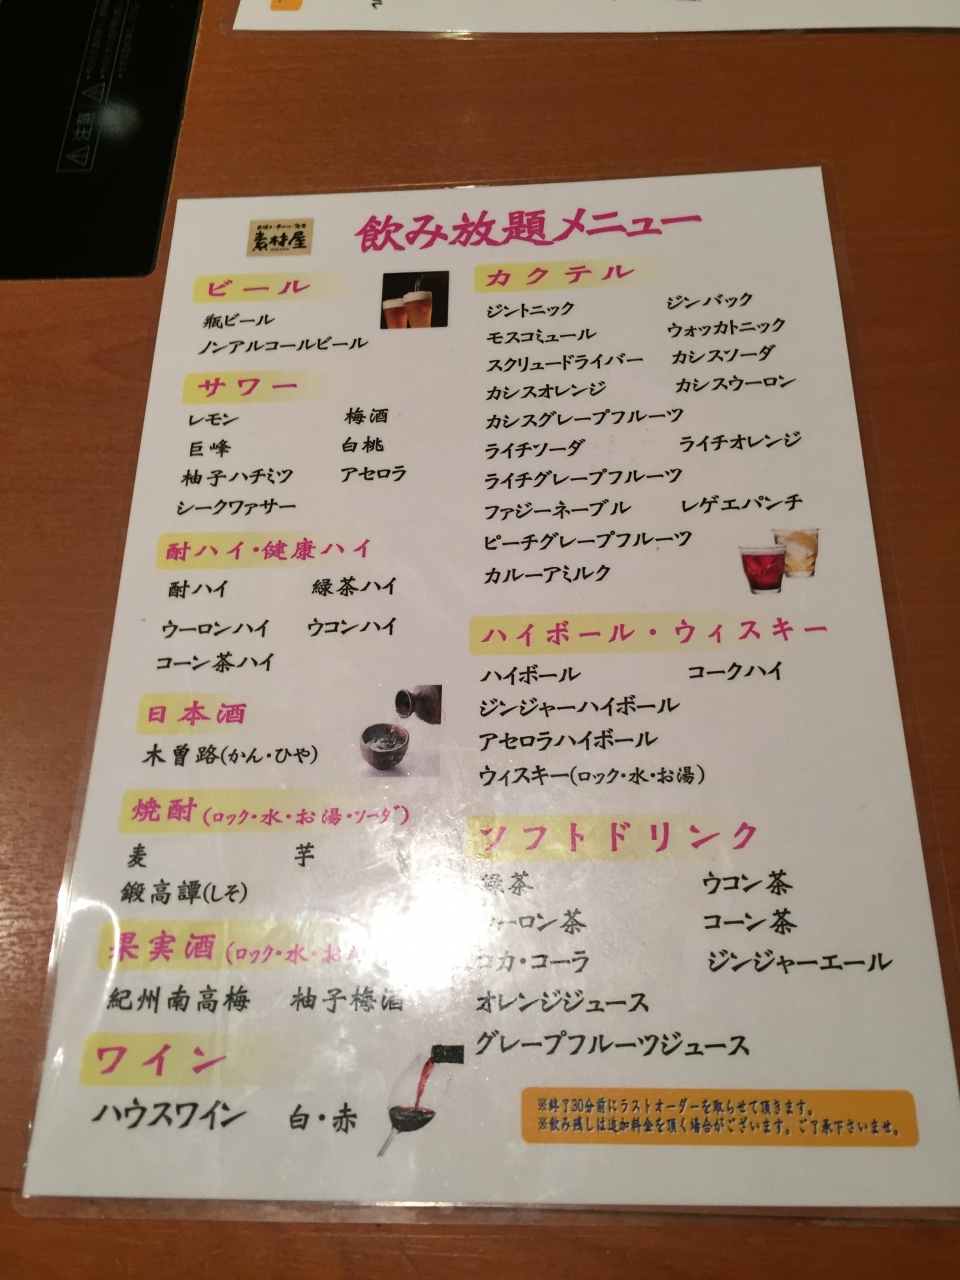 注意
素材屋
飲み放題メニュー
ビール
瓶ビール
ノンアルコールビール
サワー
レモン 梅酒
巨峰 白桃
柚子ハチミツ アセロラ
シークワァサー
酎ハイ・健康ハイ
酎ハイ 緑茶ハイ
ウーロンハイ ウコンハイ
コーン茶ハイ
日本酒
木曽路(かん・ひや)
焼酎(ロック・水・お湯・ソーダ)
麦 芋
鍛高譚(しそ)
果実酒(ロック・水・お
紀州南高梅 柚子梅酒
ワイン
ハウスワイン 白・赤
カクテル
ジントニック ジンバック
モスコミュール ウォッカトニック
スクリュードライバー カシスソーダ
カシスオレンジ カシスウーロン
カシスグレープフルーツ
ライチソーダ ライチオレンジ
ライチグレープフルーツ
ファジーネーブル レゲエパンチ
ピーチグレープフルーツ
カルーアミルク
ハイボール・ウィスキー
ハイボール コークハイ
ジンジャーハイボール
アセロラハイボール
ウィスキー(ロック・水・お湯)
ソフトドリンク
緑茶 ウコン茶
ーロン茶 コーン茶
コカ・コーラ ジンジャーエール
オレンジジュース
グレープフルーツジュース
※終了30分前にラストオーダーを取らせて頂きます。
※飲み残しは追加料金を頂く場合がございます。ご了承下さいませ。